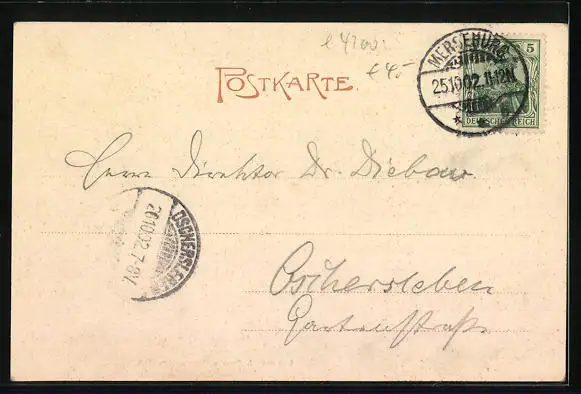 € 47,00
€ 45,-
POSTKARTE
MERSEBURG
25.10.02. 11-12N.
5
DEUTSCHES REICH
Herrn Direktor Dr. Diebow.
OSCHERSLEBEN
26.10.02. 7-8V.
Oschersleben
Gartenstraße